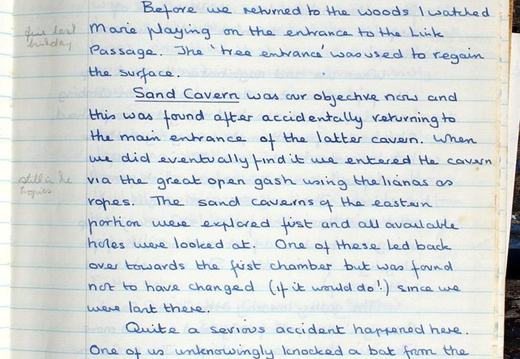 Before we returned to the woods I watched
Marie playing on the entrance to the Link
Passage. The 'tree entrance' was used to regain
the surface.
Sand Cavern was our objective now and
this was found after accidentally returning to
the main entrance of the latter cavern. When
we did eventually find it we entered the cavern
via the great open gash using the lianas as
ropes. The sand caverns of the eastern
portion were explored first and all available
holes were looked at. One of these led back
over towards the first chamber but was found
not to have changed (if it would do!) since we
were last there.
Quite a serious accident happened here.
One of us unknowingly knocked a bat from the
last
still in the
tropics